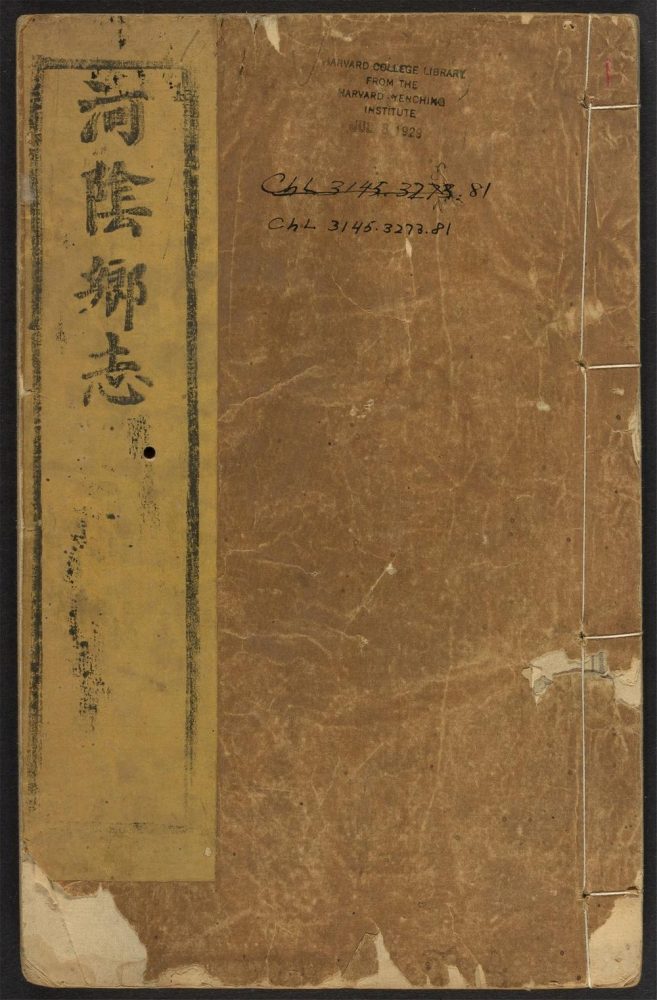 河陰鄉志
HARVARD COLLEGE LIBRARY
FROM THE
HARVARD-YENCHING
INSTITUTE
JUL 3 1929
ChL 3145.3273.81
ChL 3145.3273.81
1